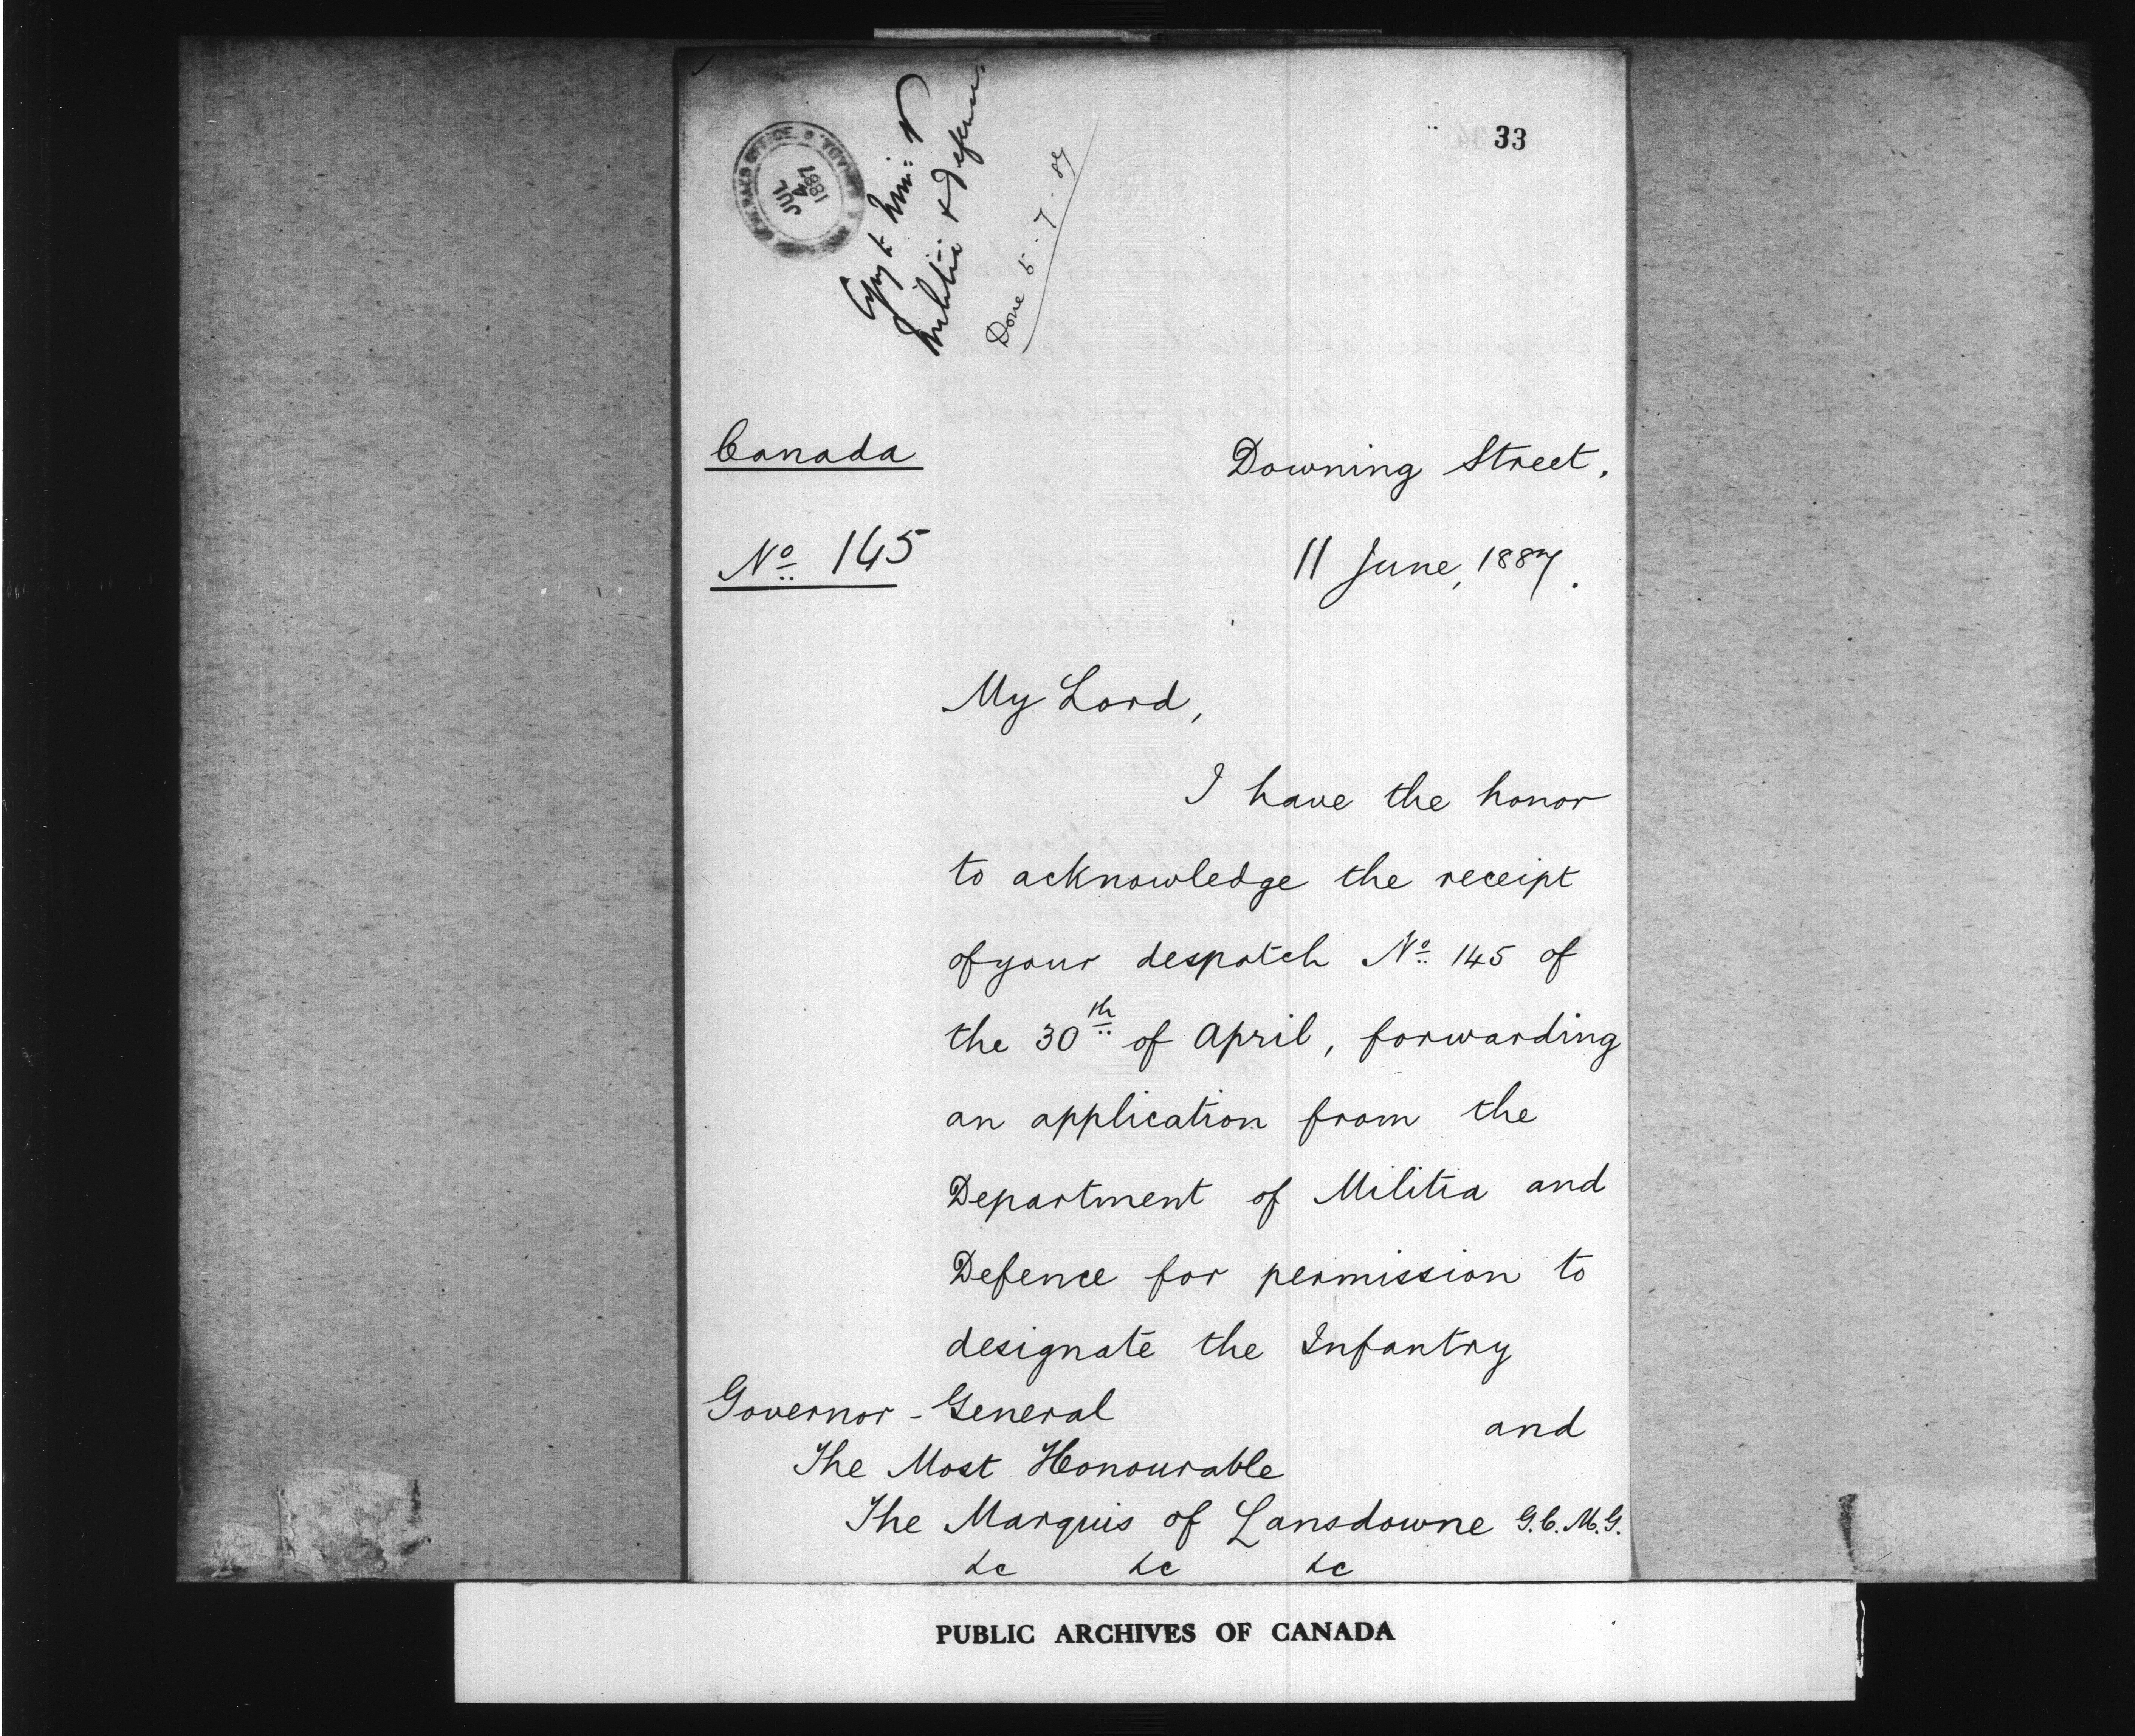 33
JUL
4
1887
Copy to Min: of
Militia & Defence
Done 5.7.87
Canada
Downing Street,
Nº 145
11 June, 1887.
My Lord,
I have the honor
to acknowledge the receipt
of your despatch Nº 145 of
the 30th of April, forwarding
an application from the
Department of Militia and
Defence for permission to
designate the Infantry
and
Governor-General
The Most Honourable
The Marquis of Lansdowne G.C.M.G.
&c &c &c
PUBLIC ARCHIVES OF CANADA